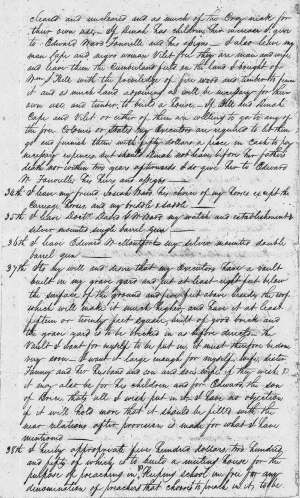 cleared and uncleared and as much of the Crop as for
their own use. If Dinah has children their increase I give
to Edward Ward Tanville and his assigns. I also leave my
man Cape and negro woman Vilet his they are man and wife
and leave them the Cumberland lots on the land I bought of
Wm Hill with the priviledge of fire wood and timber to fence
it and as much land adjoining as will be necessary for their
own use and timber to build a house. If Abb and Dinah
Cape and Vilet or either of them are willing to go to any of
the free Colonies or States my Executors are required to let them
go and furnish them with fifty dollars a piece in Cash to pay
necessary expences but should Dinah not leave before her father's
death nor within two years afterwards I do give her to Edward
W. Tanville his heirs and assigns
34th I leave my friend Josiah Ward his choice of my horses except the
Carriage horses and my bridle & saddle
35th I leave Doctr W Ward my watch and establishment &
silver mounted single barrel gun
36th I leave Edward W my silver mounted double
barrel gun
37th It is my will and desire that my Executors have a vault
built in my grave yard and put at least eight feet below
the surface of the ground and five feet above besides the roof
which will make it much higher and have it at least
fifteen or twenty feet square, built of good brick and
the grave yard to be bricked in as before directed. The
Vault I want for myself to be put in it must therefore be done
very soon. I want it large enough for myself, wife, sister
Fanny and her Husband and son and son's wife if they wish it
it may also be for the children and for Edward the son
of Done, that's all I wish put in it. I have no objection
if it will hold more that it should be filled with the
near relations after provision is made for what I have
mentioned
38th I hereby appropriate five hundred dollars, two hundred
and fifty of which is to build a meeting house for the
purpose of preaching in, Keeping school in, for any
denomination of preachers that choose to preach in it, to be